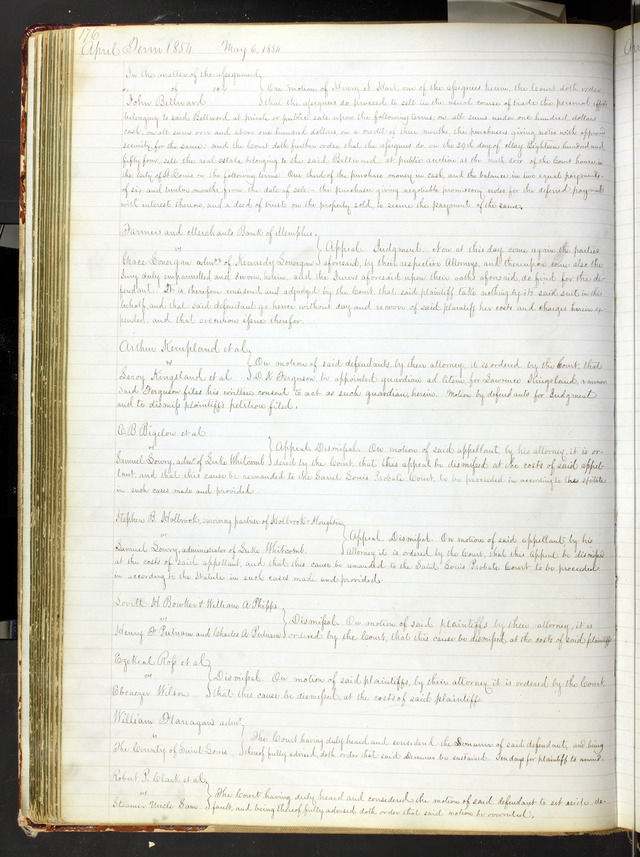 176
April Term 1854 May 6, 1854
In the matter of the assignment
of
John Bellward
On motion of Henry S. Hart, one of the assignees herein, the Court doth order
that the assignees do proceed to sell in the usual course of trade the personal effects
belonging to said Bellward at private or public sale upon the following terms: on all sums under one hundred dollars
cash, on all sums over and above one hundred dollars, on a credit of three months, the purchasers giving notes with approved
security for the same: and the Court doth further order that the assignees do on the 29th day of May Eighteen hundred and
fifty four, sell the real estate belonging to the said Bellward at public auction at the north door of the Court house in
the City of St Louis on the following terms. One third of the purchase money in cash, and the balance in two equal payments
of six and twelve months from the date of sale - the purchaser giving negotiable promissory notes for the deferred payments
with interest thereon, and a deed of trust on the property sold to secure the payment of the same.
Farmers and Merchants Bank of Memphis,
vs
Chace Lonergan admx of Kennedy Lonergan
Appeal Judgment. Now at this day come again the parties
aforesaid, by their respective Attorneys, and thereupon come also the
Jury duly empannelled and Sworn herein and the Jurors aforesaid upon their oaths aforesaid do find for the de-
fendant. It is therefore considered and adjudged by the Court that said plaintiff take nothing by its said suit in this
behalf, and that said defendant go hence without day and recover of said plaintiff her costs and charges herein ex-
pended, and that execution issue therefor.
Arthur Kempland et al,
vs
Leroy Kingsland et al
On motion of said defendants, by their attorney, it is ordered by the Court, that
D. N. Ferguson, be appointed guardian ad litem for Lawrence Kingsland, a minor
Said Ferguson files his written consent to act as such guardian herein. Motion by defendants for Judgment
and to dismiss plaintiffs petition filed.
C. B. Bigelow et al
vs
Samuel Lowry, admr of Luke Whitcomb
Appeal Dismissed. On motion of said appellant, by his attorney, it is or-
dered by the Court, that this appeal be dismissed at the costs of said appel-
lant, and that this cause be remanded to the Saint Louis Probate Court, to be proceeded in according to the statute
in such cases made and provided.
Stephen B. Holbrook, surviving partner of Holbrook & Houghton
vs
Samuel Lowry, administrator of Luke Whitcomb.
Appeal Dismissed. On motion of said appellant, by his
Attorney it is ordered by the Court, that this Appeal be dismissed
at the costs of said appellant, and that this cause be remanded to the Saint Louis Probate Court to be proceeded
in according to the statute in such cases made and provided.
Lovitt H Bowker & William A Phipps.
vs
Henry S. Putnam and Charles A Putnam
Dismissed. On motion of said plaintiffs by their attorney, it is
ordered by the Court, that this cause be dismissed at the costs of said plaintiffs
Ezekial Ross et al,
vs
Ebenezer Wilson
Dismissed. On motion of said plaintiffs, by their attorney, it is ordered by the Court
that this cause be dismissed at the costs of said plaintiffs.
William Flanagan's admr
vs
The County of Saint Louis
The Court having duly heard and considered the Demurrer of said defendant, and being
thereof fully advised, doth order that said Demurrer be sustained. Ten days for plaintiff to amend.
Robert P. Clark et al,
vs
Steamer Uncle Sam.
The Court having duly heard and considered the motion of said defendant to set aside de-
fault and being thereof fully advised, doth order that said motion be overruled.